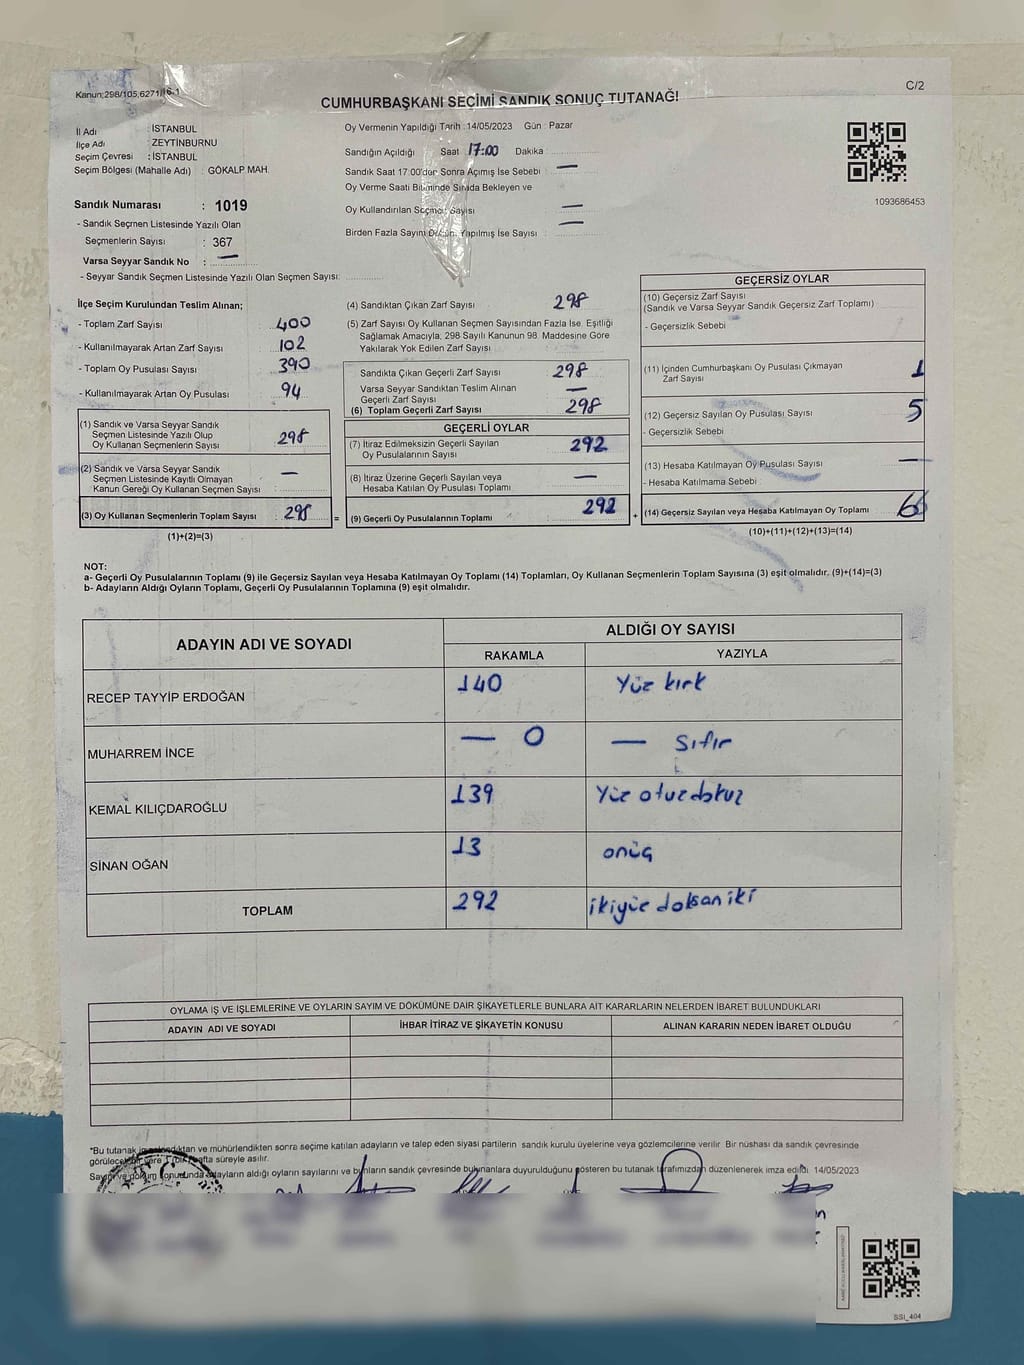 Kanun;298/105,6271/16-1
C/2
CUMHURBAŞKANI SEÇİMİ SANDIK SONUÇ TUTANAĞI
İl Adı : İSTANBUL
İlçe Adı : ZEYTİNBURNU
Seçim Çevresi : İSTANBUL
Seçim Bölgesi (Mahalle Adı) : GÖKALP MAH.
Oy Vermenin Yapıldığı Tarih :14/05/2023 Gün : Pazar
Sandığın Açıldığı Saat 17:00 Dakika :
Sandık Saat 17:00'den Sonra Açımış İse Sebebi : —
Oy Verme Saati Bitiminde Sırada Bekleyen ve
Oy Kullandırılan Seçmen Sayısı —
Birden Fazla Sayım Döküm Yapılmış İse Sayısı : —
1093686453
Sandık Numarası : 1019
- Sandık Seçmen Listesinde Yazılı Olan
Seçmenlerin Sayısı : 367
Varsa Seyyar Sandık No : —
- Seyyar Sandık Seçmen Listesinde Yazılı Olan Seçmen Sayısı:
İlçe Seçim Kurulundan Teslim Alınan;
- Toplam Zarf Sayısı : 400
- Kullanılmayarak Artan Zarf Sayısı : 102
- Toplam Oy Pusulası Sayısı : 390
- Kullanılmayarak Artan Oy Pusulası : 94
(1) Sandık ve Varsa Seyyar Sandık
Seçmen Listesinde Yazılı Olup
Oy Kullanan Seçmenlerin Sayısı : 298
(2) Sandık ve Varsa Seyyar Sandık
Seçmen Listesinde Kayıtlı Olmayan
Kanun Gereği Oy Kullanan Seçmen Sayısı : —
(3) Oy Kullanan Seçmenlerin Toplam Sayısı : 298
(1)+(2)=(3)
=
(4) Sandıktan Çıkan Zarf Sayısı 298
(5) Zarf Sayısı Oy Kullanan Seçmen Sayısından Fazla İse, Eşitliği
Sağlamak Amacıyla, 298 Sayılı Kanunun 98. Maddesine Göre
Yakılarak Yok Edilen Zarf Sayısı
Sandıkta Çıkan Geçerli Zarf Sayısı 298
Varsa Seyyar Sandıktan Teslim Alınan
Geçerli Zarf Sayısı —
(6) Toplam Geçerli Zarf Sayısı 298
GEÇERLİ OYLAR
(7) İtiraz Edilmeksizin Geçerli Sayılan
Oy Pusulalarının Sayısı 292
(8) İtiraz Üzerine Geçerli Sayılan veya
Hesaba Katılan Oy Pusulası Toplamı —
(9) Geçerli Oy Pusulalarının Toplamı 292
+
GEÇERSİZ OYLAR
(10) Geçersiz Zarf Sayısı
(Sandık ve Varsa Seyyar Sandık Geçersiz Zarf Toplamı)
- Geçersizlik Sebebi
(11) İçinden Cumhurbaşkanı Oy Pusulası Çıkmayan
Zarf Sayısı 1
(12) Geçersiz Sayılan Oy Pusulası Sayısı 5
- Geçersizlik Sebebi
(13) Hesaba Katılmayan Oy Pusulası Sayısı —
- Hesaba Katılmama Sebebi
(14) Geçersiz Sayılan veya Hesaba Katılmayan Oy Toplamı 6
(10)+(11)+(12)+(13)=(14)
NOT:
a- Geçerli Oy Pusulalarının Toplamı (9) ile Geçersiz Sayılan veya Hesaba Katılmayan Oy Toplamı (14) Toplamları, Oy Kullanan Seçmenlerin Toplam Sayısına (3) eşit olmalıdır. (9)+(14)=(3)
b- Adayların Aldığı Oyların Toplamı, Geçerli Oy Pusulalarının Toplamına (9) eşit olmalıdır.
ADAYIN ADI VE SOYADI
ALDIĞI OY SAYISI
RAKAMLA YAZIYLA
RECEP TAYYİP ERDOĞAN 140 Yüz kırk
MUHARREM İNCE — 0 — sıfır
KEMAL KILIÇDAROĞLU 139 Yüz otuzdokuz
SİNAN OĞAN 13 onüç
TOPLAM 292 ikiyüz doksan iki
OYLAMA İŞ VE İŞLEMLERİNE VE OYLARIN SAYIM VE DÖKÜMÜNE DAİR ŞİKAYETLERLE BUNLARA AİT KARARLARIN NELERDEN İBARET BULUNDUKLARI
ADAYIN ADI VE SOYADI İHBAR İTİRAZ VE ŞİKAYETİN KONUSU ALINAN KARARIN NEDEN İBARET OLDUĞU
*Bu tutanak imzalandıktan ve mühürlendikten sonra seçime katılan adayların ve talep eden siyasi partilerin sandık kurulu üyelerine veya gözlemcilerine verilir. Bir nüshası da sandık çevresinde
görülecek bir yere 1 bir hafta süreyle asılır.
Sayım ve döküm sonucunda adayların aldığı oyların sayılarını ve bunların sandık çevresinde bulunanlara duyurulduğunu gösteren bu tutanak tarafımızdan düzenlenerek imza edildi. 14/05/2023
SSI_404